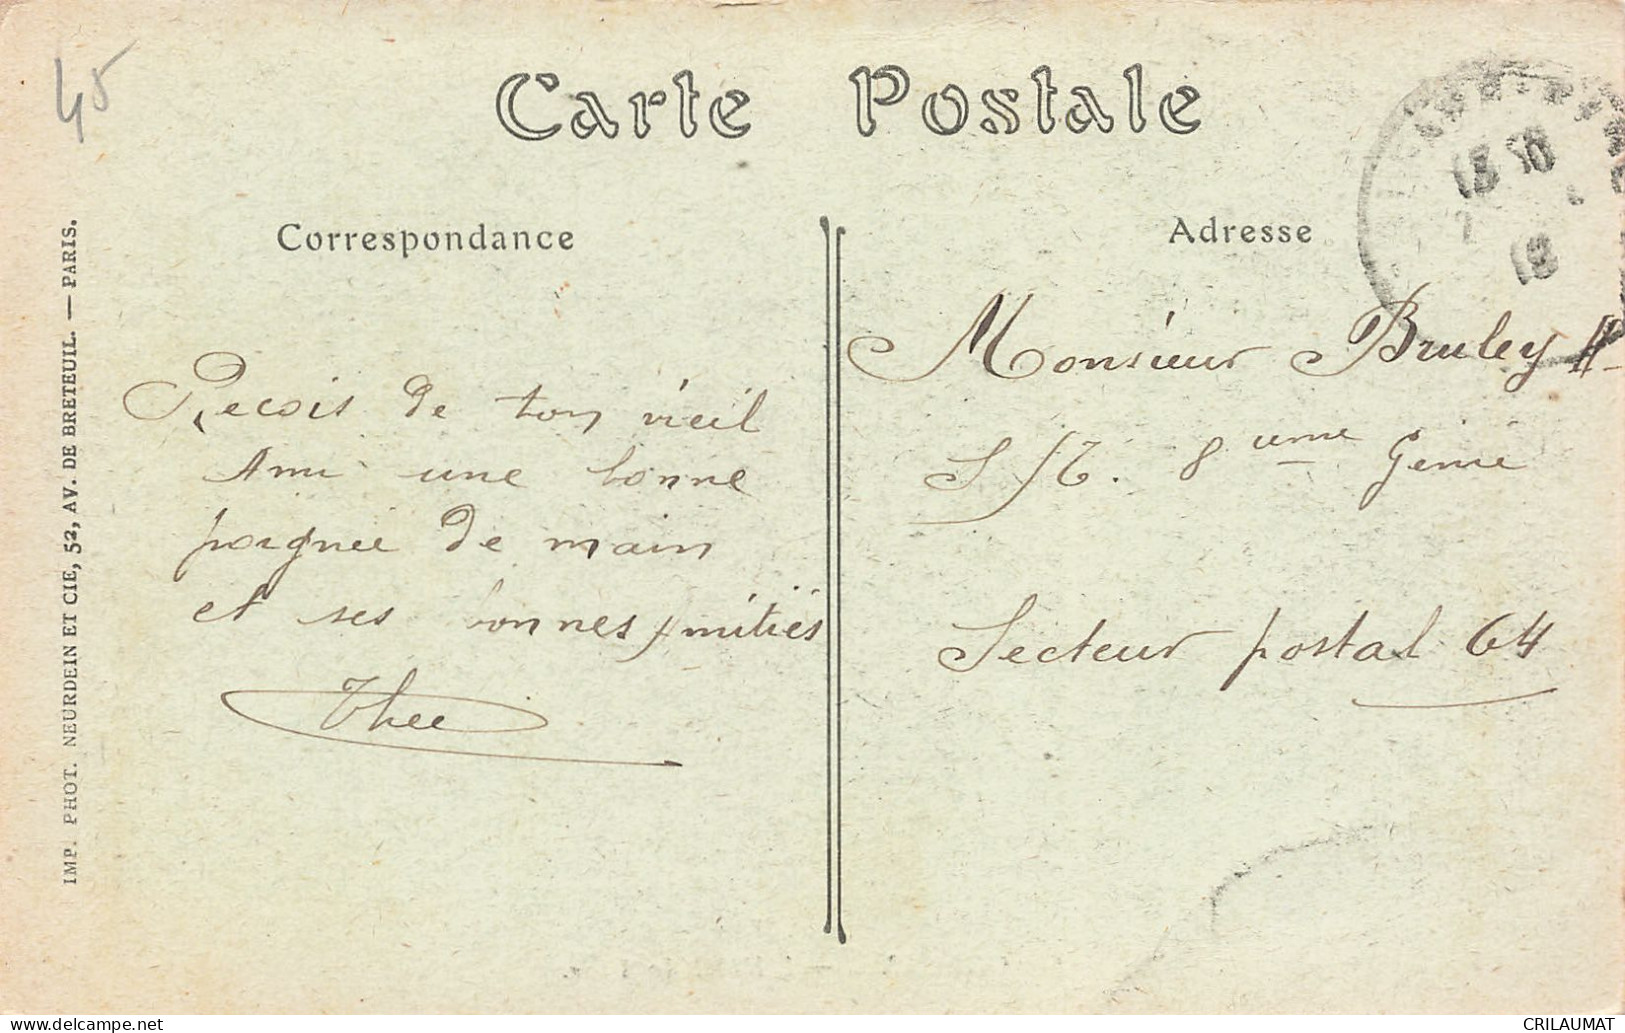 45
Carte Postale
Correspondance
Adresse
Recois de ton vieil
Ami une bonne
poignee de main
et ses bonnes amitiés
Thee
Monsieur Bruley H
S/Lt. 8 ième Génie
Secteur postal 64
IMP. PHOT. NEURDEIN ET CIE, 52, AV. DE BRETEUIL. — PARIS.
CRILAUMAT